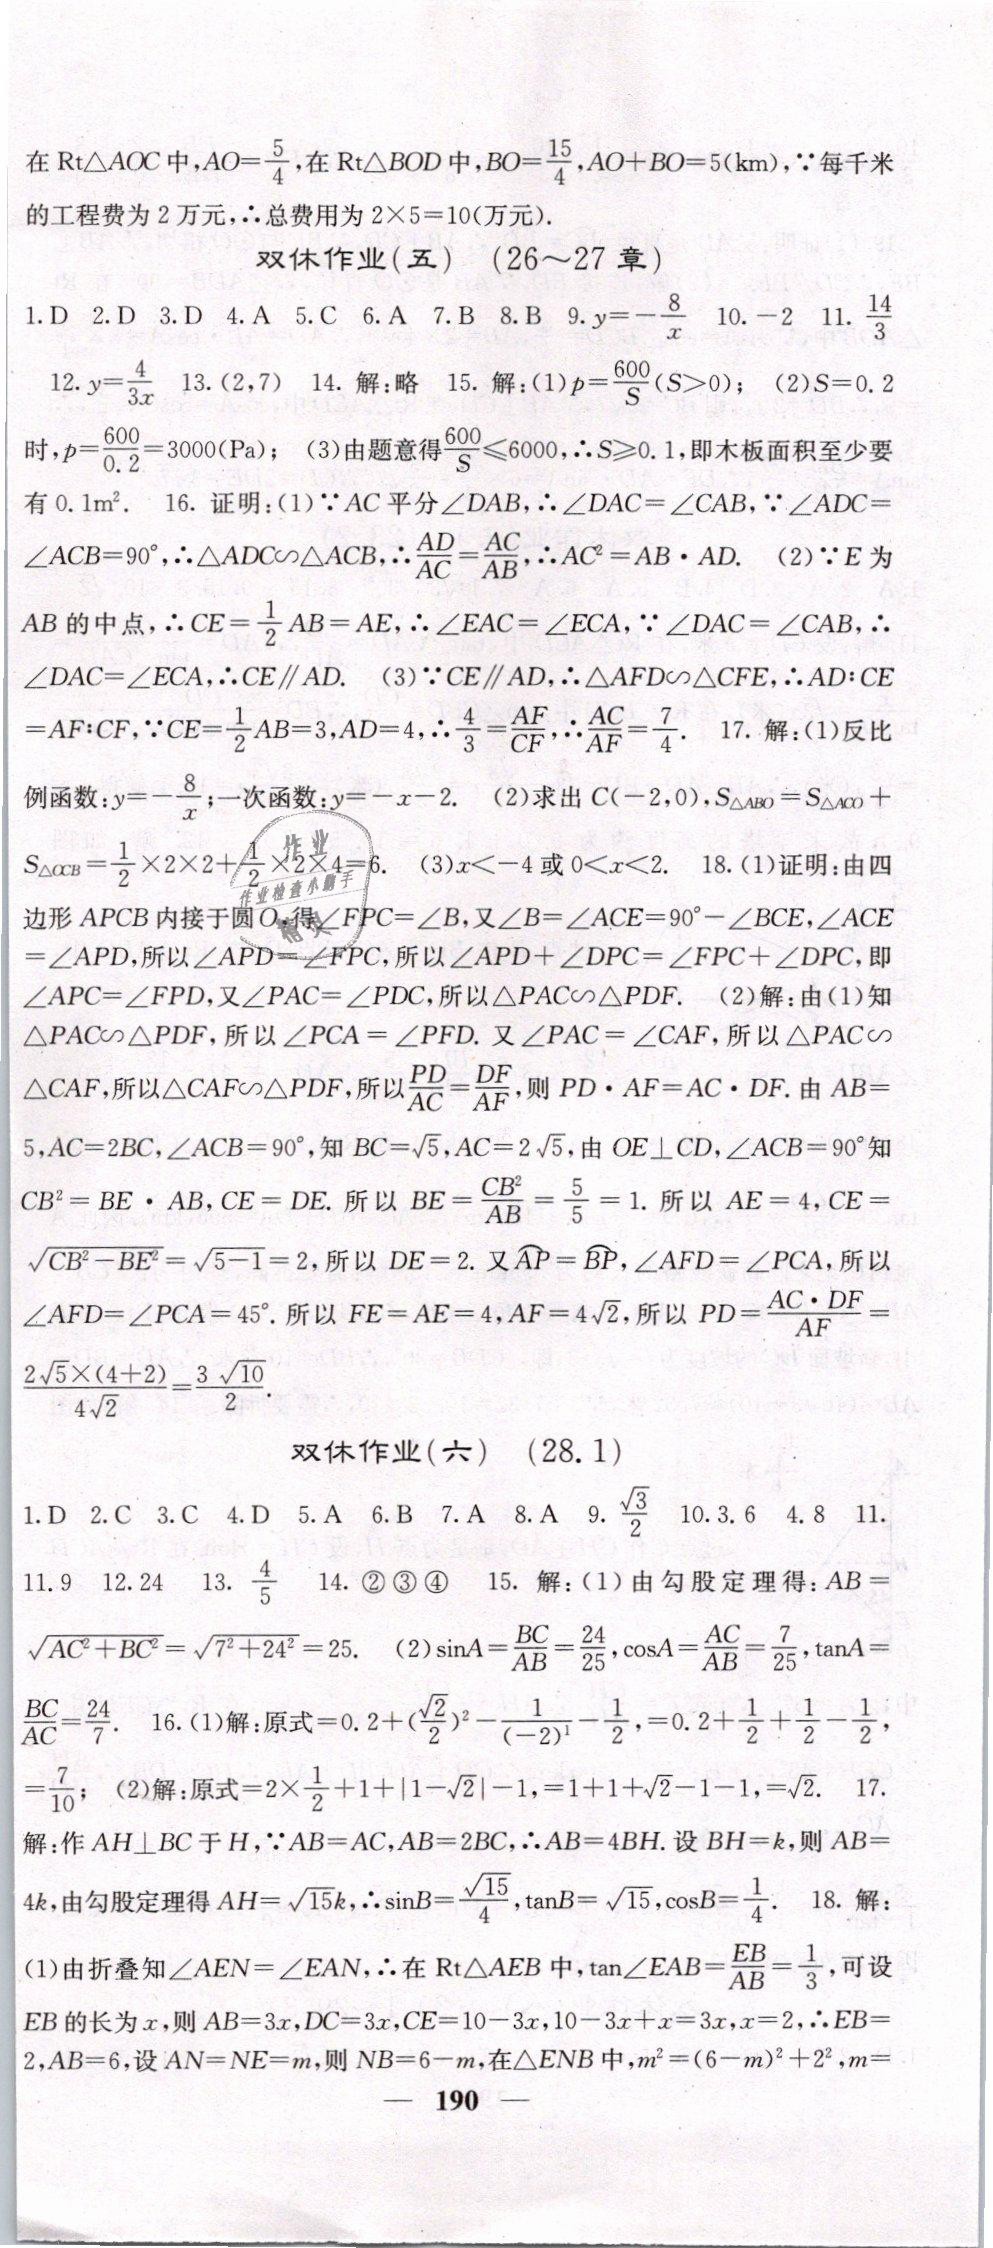 在 Rt△AOC 中,AO=5/4,在 Rt△BOD 中,BO=15/4,AO+BO=5(km),∵每千米
的工程费为 2 万元,∴总费用为 2×5=10(万元).
双休作业(五) (26～27 章)
1. D 2. D 3. D 4. A 5. C 6. A 7. B 8. B 9. y=-8/x 10. -2 11. 14/3
12. y=4/(3x) 13. (2,7) 14. 解:略 15. 解:(1)p=600/S(S>0); (2)S=0.2
时,p=600/0.2=3000(Pa); (3)由题意得600/S≤6000,∴S≥0.1,即木板面积至少要
有 0.1m². 16. 证明:(1)∵AC 平分∠DAB,∴∠DAC=∠CAB,∵∠ADC=
∠ACB=90°,∴△ADC∽△ACB,∴AD/AC=AC/AB,∴AC²=AB·AD. (2)∵E 为
AB 的中点,∴CE=1/2 AB=AE,∴∠EAC=∠ECA,∵∠DAC=∠CAB,∴
∠DAC=∠ECA,∴CE∥AD. (3)∵CE∥AD,∴△AFD∽△CFE,∴AD∶CE
=AF∶CF,∵CE=1/2 AB=3,AD=4,∴4/3=AF/CF,∴AC/AF=7/4. 17. 解:(1)反比
例函数:y=-8/x;一次函数:y=-x-2. (2)求出 C(-2,0),S△ABO=S△ACO+
S△OCB=1/2×2×2+1/2×2×4=6. (3)x<-4 或 0<x<2. 18. (1)证明:由四
边形 APCB 内接于圆 O,得∠FPC=∠B,又∠B=∠ACE=90°-∠BCE,∠ACE
=∠APD,所以∠APD=∠FPC,所以∠APD+∠DPC=∠FPC+∠DPC,即
∠APC=∠FPD,又∠PAC=∠PDC,所以△PAC∽△PDF. (2)解:由(1)知
△PAC∽△PDF,所以∠PCA=∠PFD. 又∠PAC=∠CAF,所以△PAC∽
△CAF,所以△CAF∽△PDF,所以PD/AC=DF/AF,则 PD·AF=AC·DF. 由 AB=
5,AC=2BC,∠ACB=90°,知 BC=√5,AC=2√5,由 OE⊥CD,∠ACB=90°知
CB²=BE·AB,CE=DE. 所以 BE=CB²/AB=5/5=1. 所以 AE=4,CE=
√(CB²-BE²)=√(5-1)=2,所以 DE=2. 又⌒AP=⌒BP,∠AFD=∠PCA,所以
∠AFD=∠PCA=45°. 所以 FE=AE=4,AF=4√2,所以 PD=(AC·DF)/AF=
(2√5×(4+2))/(4√2)=(3√10)/2.
双休作业(六) (28.1)
1. D 2. C 3. C 4. D 5. A 6. B 7. A 8. A 9. √3/2 10. 3.6 4.8 11.
11.9 12. 24 13. 4/5 14. ②③④ 15. 解:(1)由勾股定理得:AB=
√(AC²+BC²)=√(7²+24²)=25. (2)sinA=BC/AB=24/25,cosA=AC/AB=7/25,tanA=
BC/AC=24/7. 16. (1)解:原式=0.2+(√2/2)²-1/(-2)¹-1/2,=0.2+1/2+1/2-1/2,
=7/10; (2)解:原式=2×1/2+1+|1-√2|-1,=1+1+√2-1-1,=√2. 17.
解:作 AH⊥BC 于 H,∵AB=AC,AB=2BC,∴AB=4BH. 设 BH=k,则 AB=
4k,由勾股定理得 AH=√15k,∴sinB=√15/4,tanB=√15,cosB=1/4. 18. 解:
(1)由折叠知∠AEN=∠EAN,∴在 Rt△AEB 中,tan∠EAB=EB/AB=1/3,可设
EB 的长为 x,则 AB=3x,DC=3x,CE=10-3x,10-3x+x=3x,x=2,∴EB=
2,AB=6,设 AN=NE=m,则 NB=6-m,在△ENB 中,m²=(6-m)²+2²,m=
— 190 —
作业
作业检查小助手
精灵